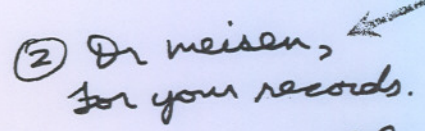 ② Dr Meisen,
For your records.